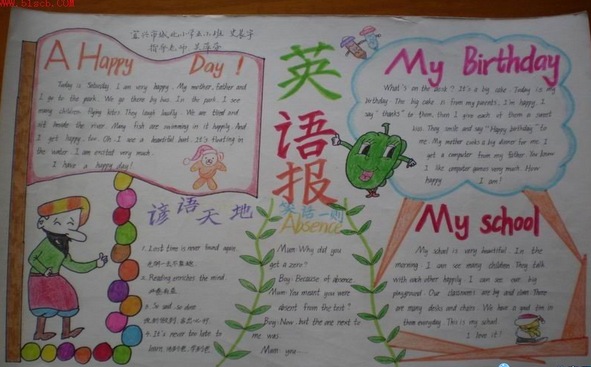 www.biscb.com
A Happy Day!
Today is Saturday. I am very happy. My mother, father and
I go to the park. We go there by bus. In the park. I see
many children flying kites. They laugh loudly. We are tired and
sit beside the river. Many fish are swimming in it happily. And
I get happy, too. Oh I see a beautiful boat. It's floating in
the water. I am excited very much.
I have a happy day!
英
语
报
My Birthday
What's on the desk? It's a big cake. Today is my
birthday. The big cake is from my parents. I'm happy. I
say "thanks" to them, then I give each of them a sweet
kiss. They smile and say "Happy birthday" to
me. My mother cooks a big dinner for me. I
get a computer from my father. You know
I like computer games very much. How
happy I am!
谚语天地
1. Lost time is never found again.
2. Reading enriches the mind.
3. So said so done
4. It's never too late to
learn.
笑话一则
Absence
Mum: Why did you
get a zero?
Boy: Because of absence.
Mum: You meant you were
absent from the test?
Boy: No, but the one next to
me was.
Mum: you...
My school
My school is very beautiful. In the
morning. I can see many children. They talk
with each other happily. I can see our big
playground. Our classrooms are big and clean. There
are many desks and chairs. We have a good time in
them everyday. This is my school.
I love it!